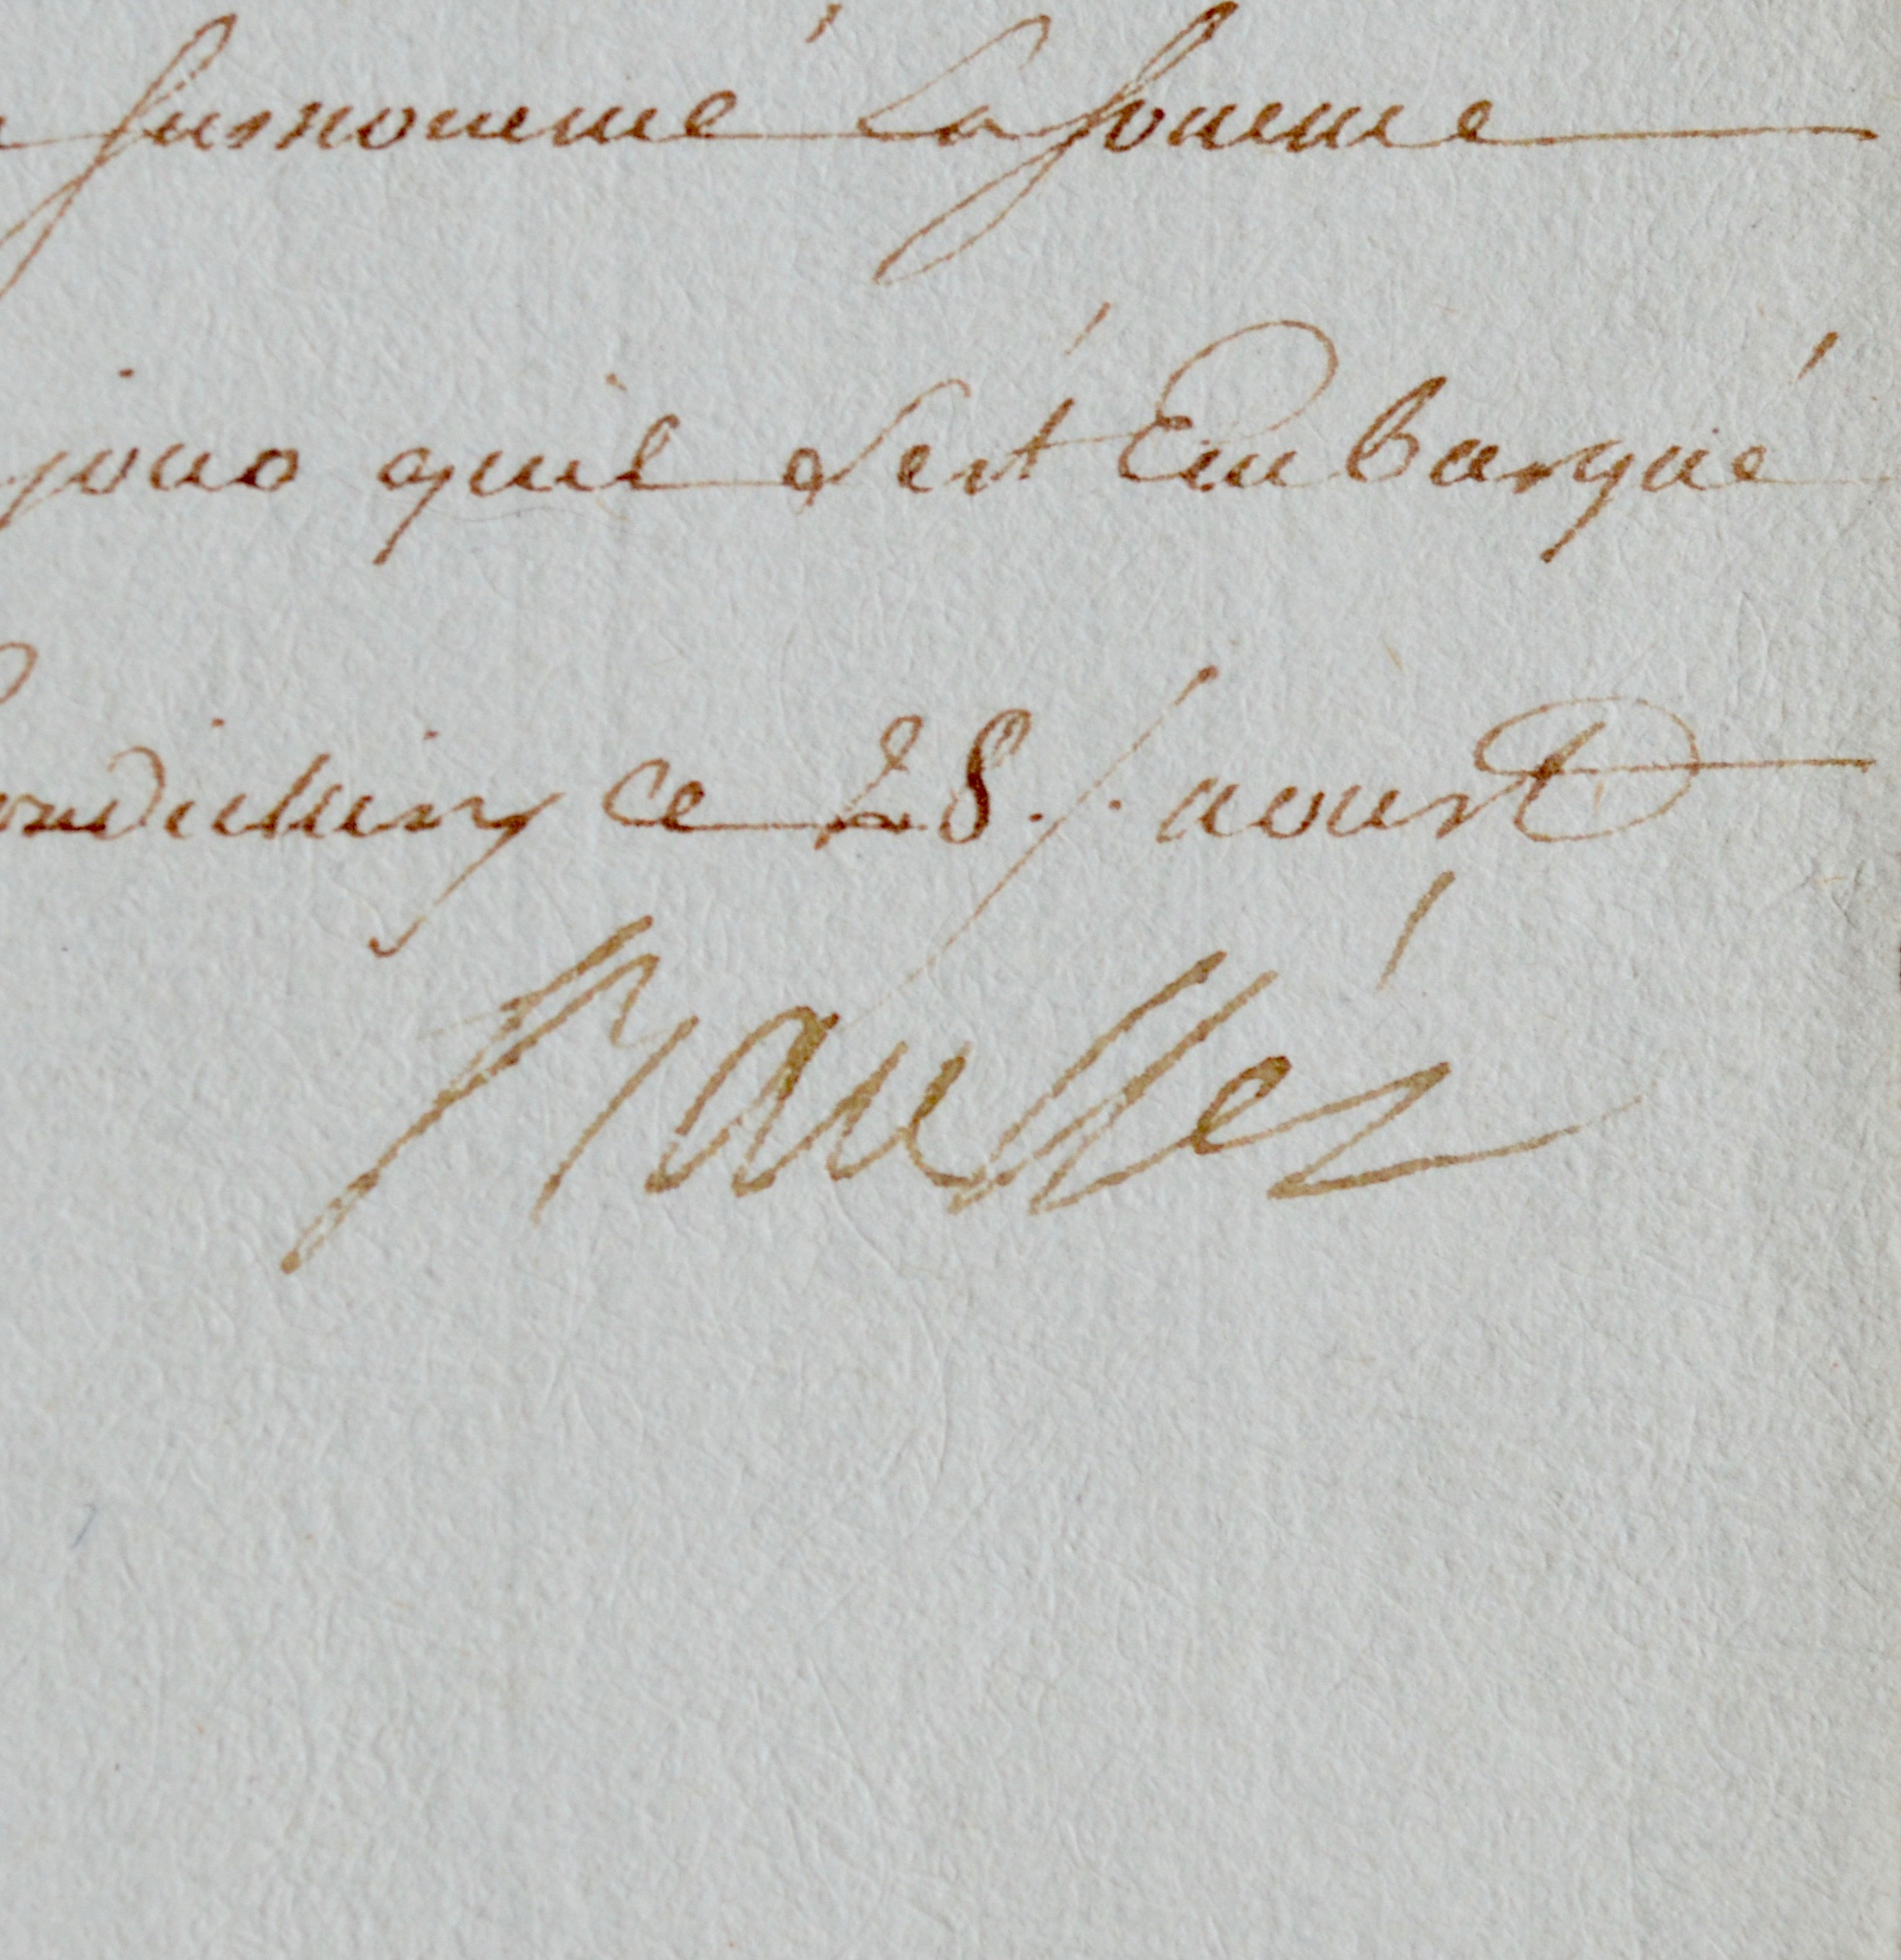 surnommé La somme
jour quil s'est Embarqué
ondichery ce 28. / . aoust